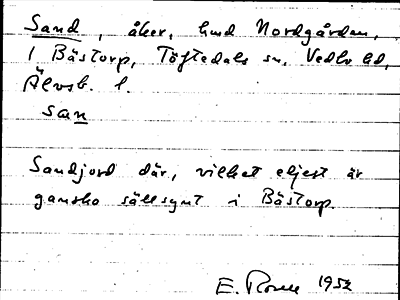 Sand, åker, hmd Nordgården,
1 Bästorp, Töftedals sn, Vedbo hd,
Älvsb. l.
san
Sandjord där, vilket eljest är
ganska sällsynt i Bästorp.
E. 1952